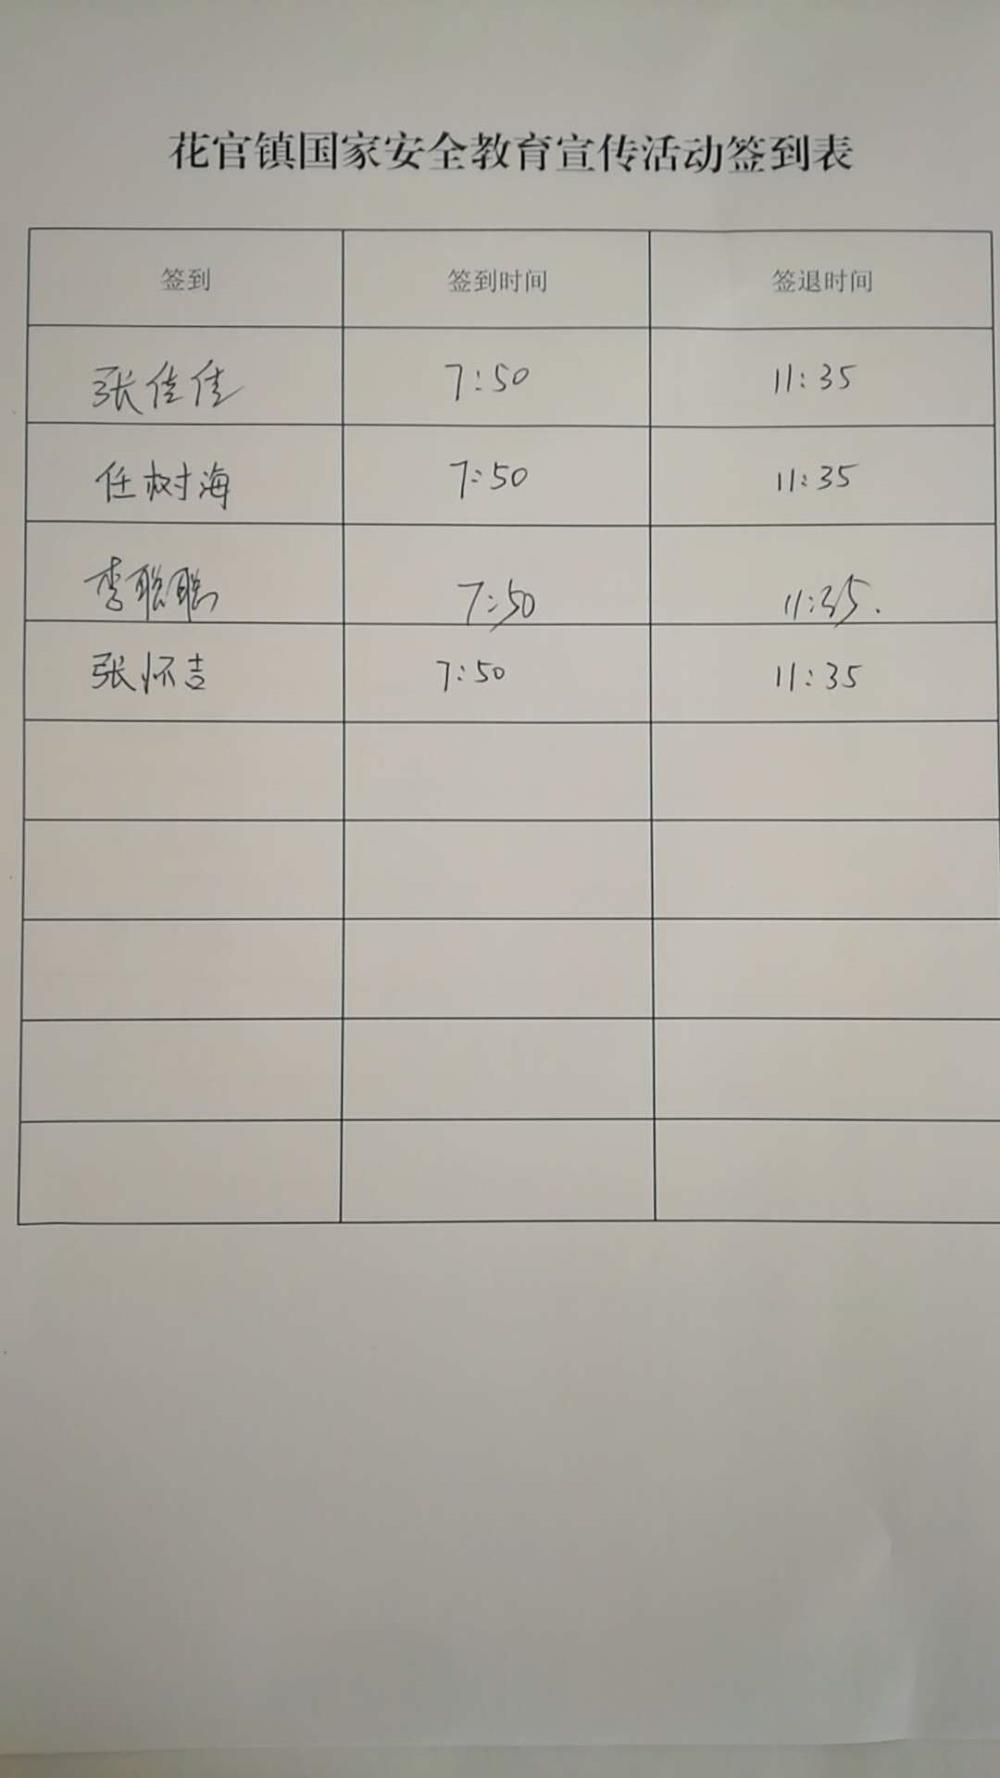 花官镇国家安全教育宣传活动签到表
签到 签到时间 签退时间
张佳佳 7:50 11:35
任树海 7:50 11:35
李聪聪 7:50 11:35.
张怀吉 7:50 11:35